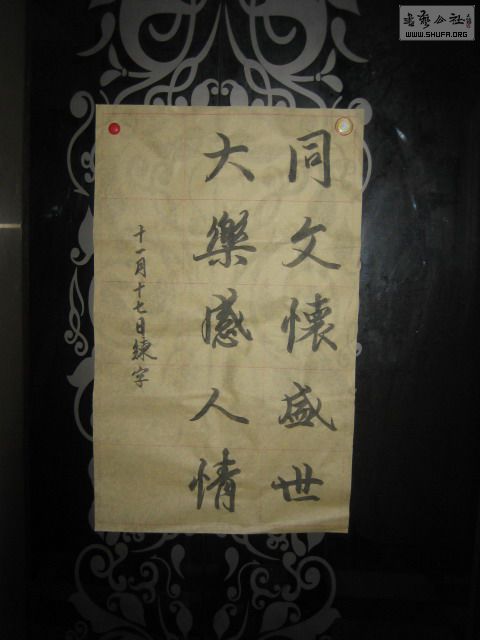 同文懷盛世
大樂感人情
十一月十七日練字
書藝公社
WWW.SHUFA.ORG